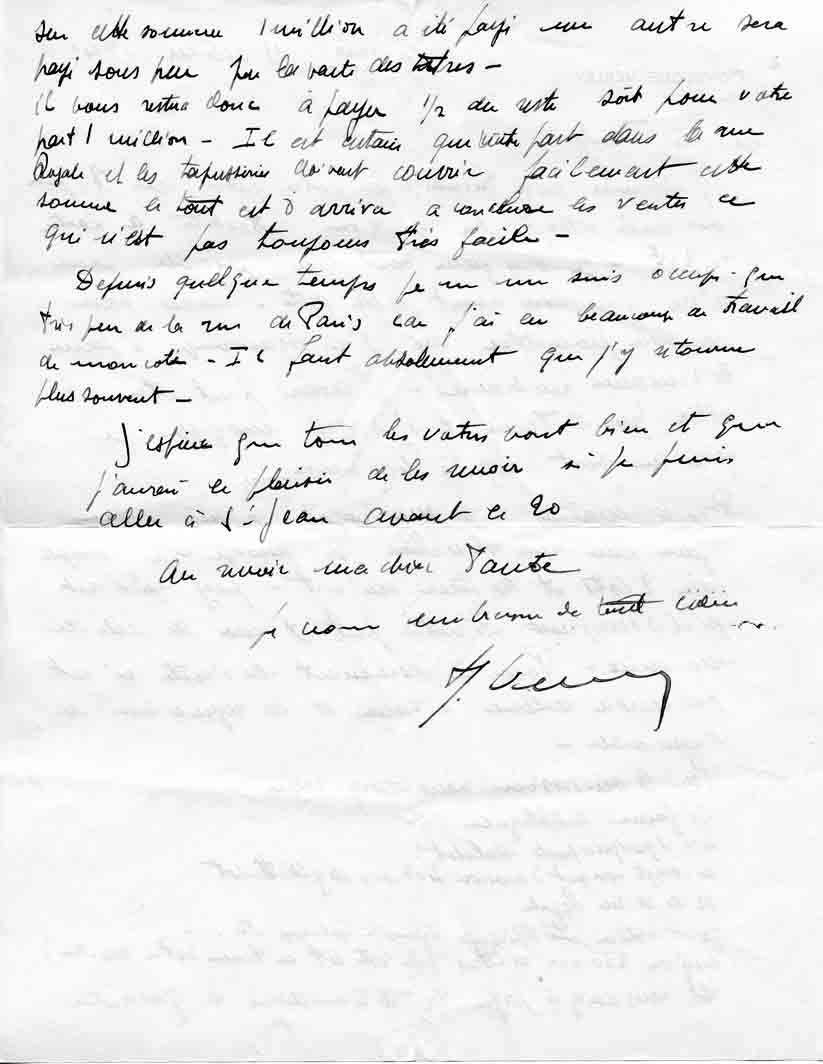 sur cette somme 1 million a été payé un autre sera
payé sous peu par la vente des titres -
il vous restera donc à payer 1/2 du reste soit pour votre
part 1 million - Il est certain que votre part dans la rue
Royale et les tapisseries doivent couvrir facilement cette
somme le tout est d arriver a conclure les ventes ce
qui n'est pas toujours très facile -
Depuis quelque temps je ne me suis occupé que
très peu de la rue de Paris car j'ai eu beaucoup de travail
de mon coté - Il faut absolument que j'y retourne
plus souvent -
J'espère que tous les votres vont bien et que
j'aurai le plaisir de les revoir si je puis
aller à St Jean avant le 20
Au revoir ma chère Tante
je vous embrasse de tout